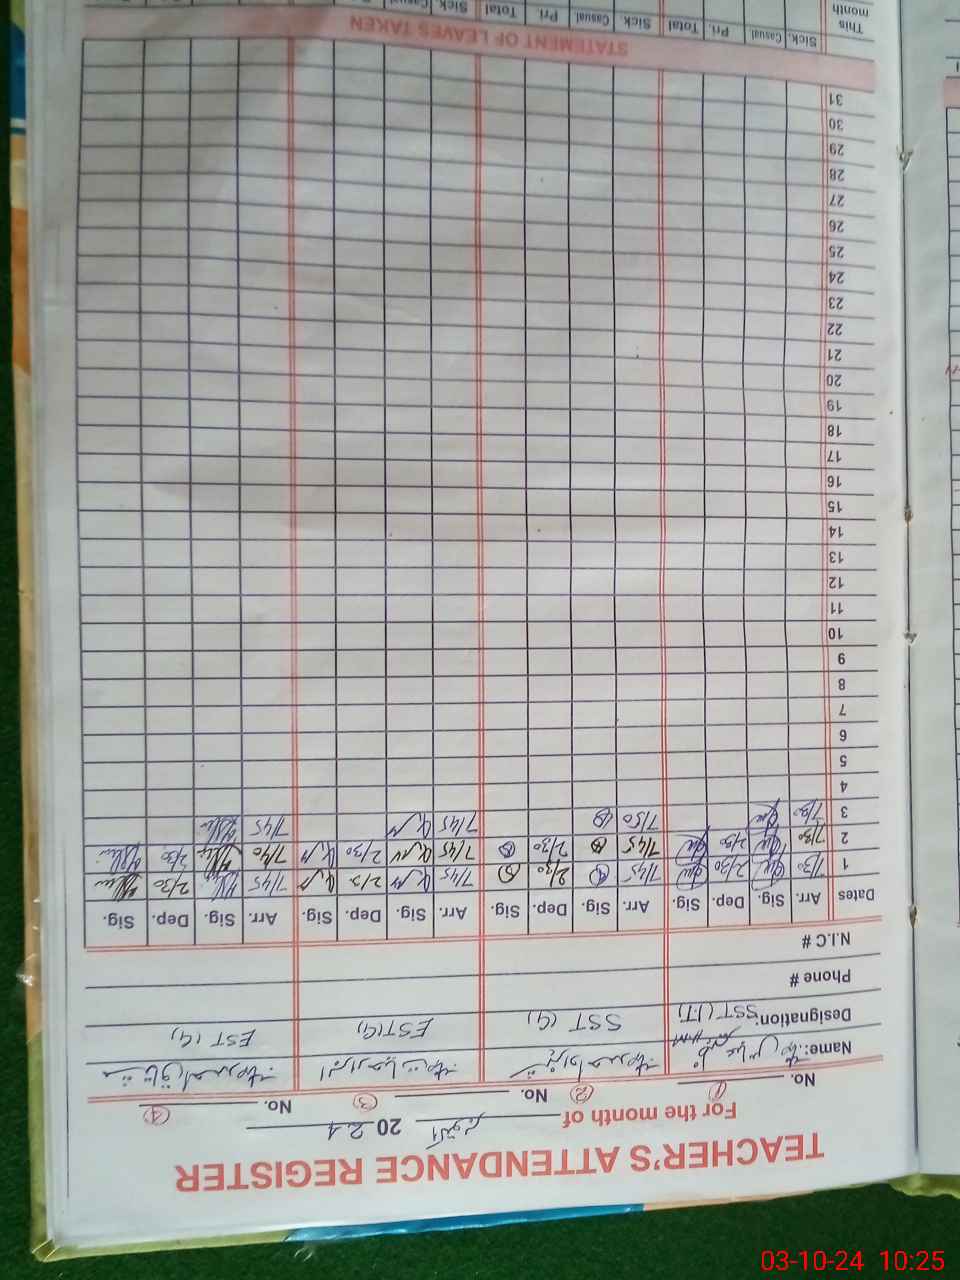 TEACHER'S ATTENDANCE REGISTER
For the month of اکتوبر 2024
No. ① No. ② No. ③ ④
Name: HM شہزاد احمد صاحب مشتاق احمد صاحب
Designation: SST (IT) SST (G) EST (G) EST (G)
Phone #
N.I.C #
Dates Arr. Sig. Dep. Sig. Arr. Sig. Dep. Sig. Arr. Sig. Dep. Sig. Arr. Sig. Dep. Sig.
1 7/30 2/30 7/45 2/30 7/45 7/45 2/30
2 7/30 2/30 7/45 2/30 7/45 2/30 7/40 2/30
3 7/30 7/50 7/45 7/45
4
5
6
7
8
9
10
11
12
13
14
15
16
17
18
19
20
21
22
23
24
25
26
27
28
29
30
31
STATEMENT OF LEAVES TAKEN
Sick. Casual. Pri. Total Sick. Casual. Pri. Total Sick. Casual.
This month
03-10-24 10:25